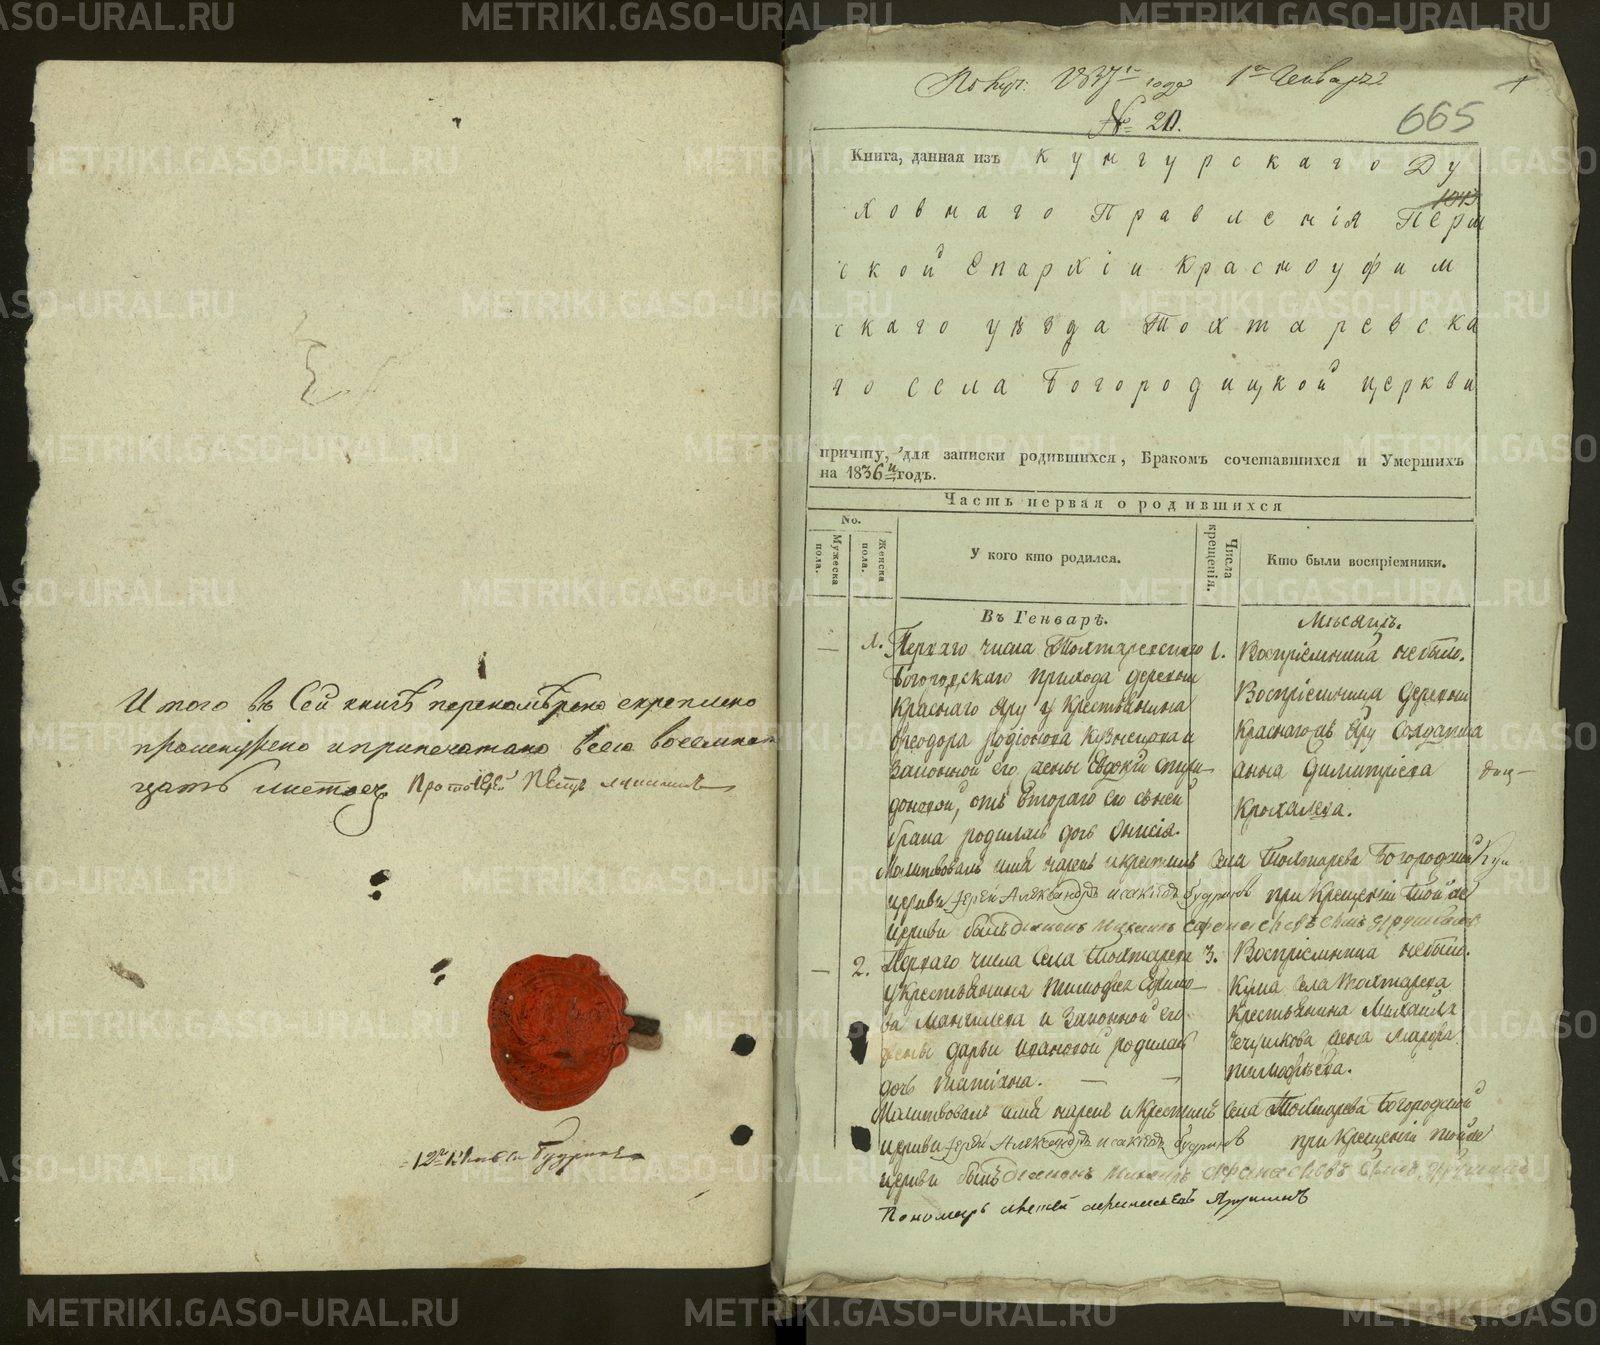 Итого въ Сей книгѣ перенумѣровано скреплено
прошнурено и припечатано всего восемнат
цать листовъ Протоіерей
По
1837 года 1го Генваря
№ 20.
665
Книга, данная изъ Кунгурскаго Ду
1013
ховнаго Правленія Перм
ской Епархіи Красноуфим
скаго уѣзда Тохтаревска
го села Богородицкой церкви
причту, для записки родившихся, Бракомъ сочетавшихся и Умершихъ
на 1836й годъ.
Часть первая о родившихся
No.
Мужеска пола.
Женска пола.
У кого кто родился.
Числа крещенія.
Кто были воспріемники.
Въ Генварѣ.
Мѣсяцѣ.
— 1. Перваго числа Тохтаревскаго
Богородскаго прихода деревни
Краснаго Яру у Крестьянина
Ѳеодора Родіонова Кузнецова и
Законной его жены Евдокіи Спири-
доновой, отъ втораго ею сѣмей
брака родилась дочь Анисія.
1. Воспріемника небыло.
Воспріемница деревни
Краснаго Яру Солдатка
Анна Димитріева
Крохалева.
Молитвовалъ имя нарекъ и крестилъ Села Тохтарева Богородской
церкви Іерей Александръ Исаковъ Будринъ при Крещеніи той же
церкви былъ діаконъ Михаилъ
— 2. Перваго числа Села Тохтарева
у Крестьянина Тимофея Ефимо-
ва Мангилева и Законной его
жены Дарьи Ивановой родилась
дочь Татіана. — —
3. Воспріемника небыло.
Кума Села Тохтарева
Крестьянина Михаила
Чечулкова жена Марфа
Тимофѣева.
Молитвовалъ имя нарекъ и Крестилъ Села Тохтарева Богородской
церкви Іерей Александръ Исаковъ Будринъ при Крещеніи той же
церкви былъ діаконъ Михаилъ
Пономарь
METRIKI.GASO-URAL.RU